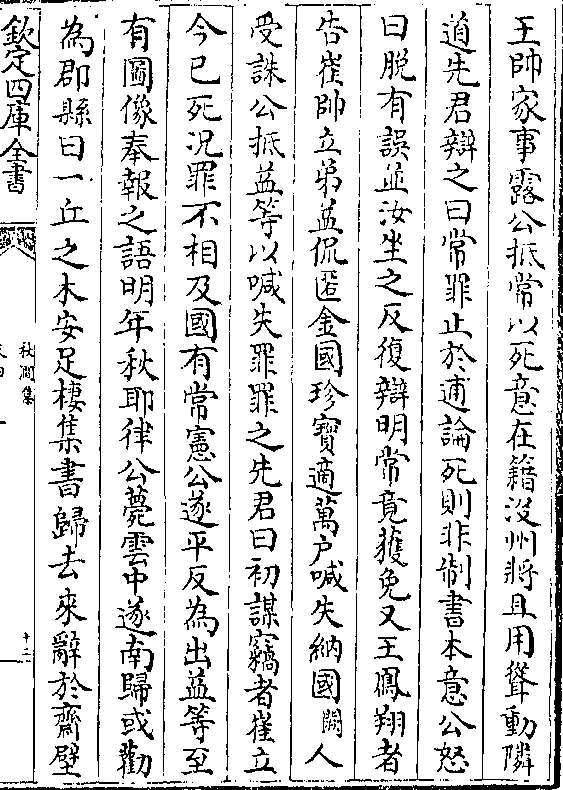 王帥家事露公抵常以死意在籍沒州將且用聳動隣
道先君辯之曰常罪止於逋論死則非制書本意公怒
曰脱有誤並汝坐之反復辯明常竟獲免又王鳳翔者
告崔帥立弟益侃匿金國珍寶適萬户喊失納國闕人
受誅公抵益等以喊失罪罪之先君曰初謀竊者崔立
今已死况罪不相及國有常憲公遂平反為出益等至
有圖像奉報之語明年秋耶律公薨雲中遂南歸或勸
為郡縣曰一丘之木安足棲集書歸去來辭於齋壁
欽定四庫全書
秋澗集
十二